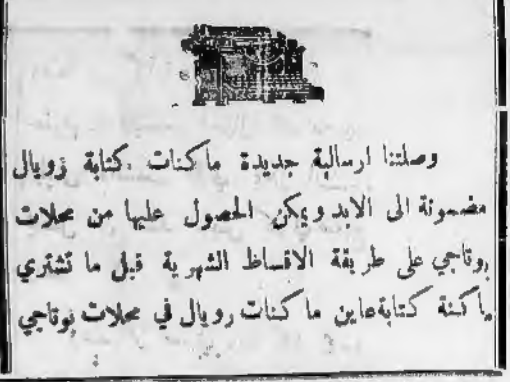 وصلتنا ارسالية جديدة ماكنات كتابة رويال
مضمونة الى الابد ويمكن الحصول عليها من محلات
بوتاجي على طريقة الاقساط الشهرية قبل ما تشتري
ماكنة كتابة عاين ماكنات رويال في محلات بوتاجي